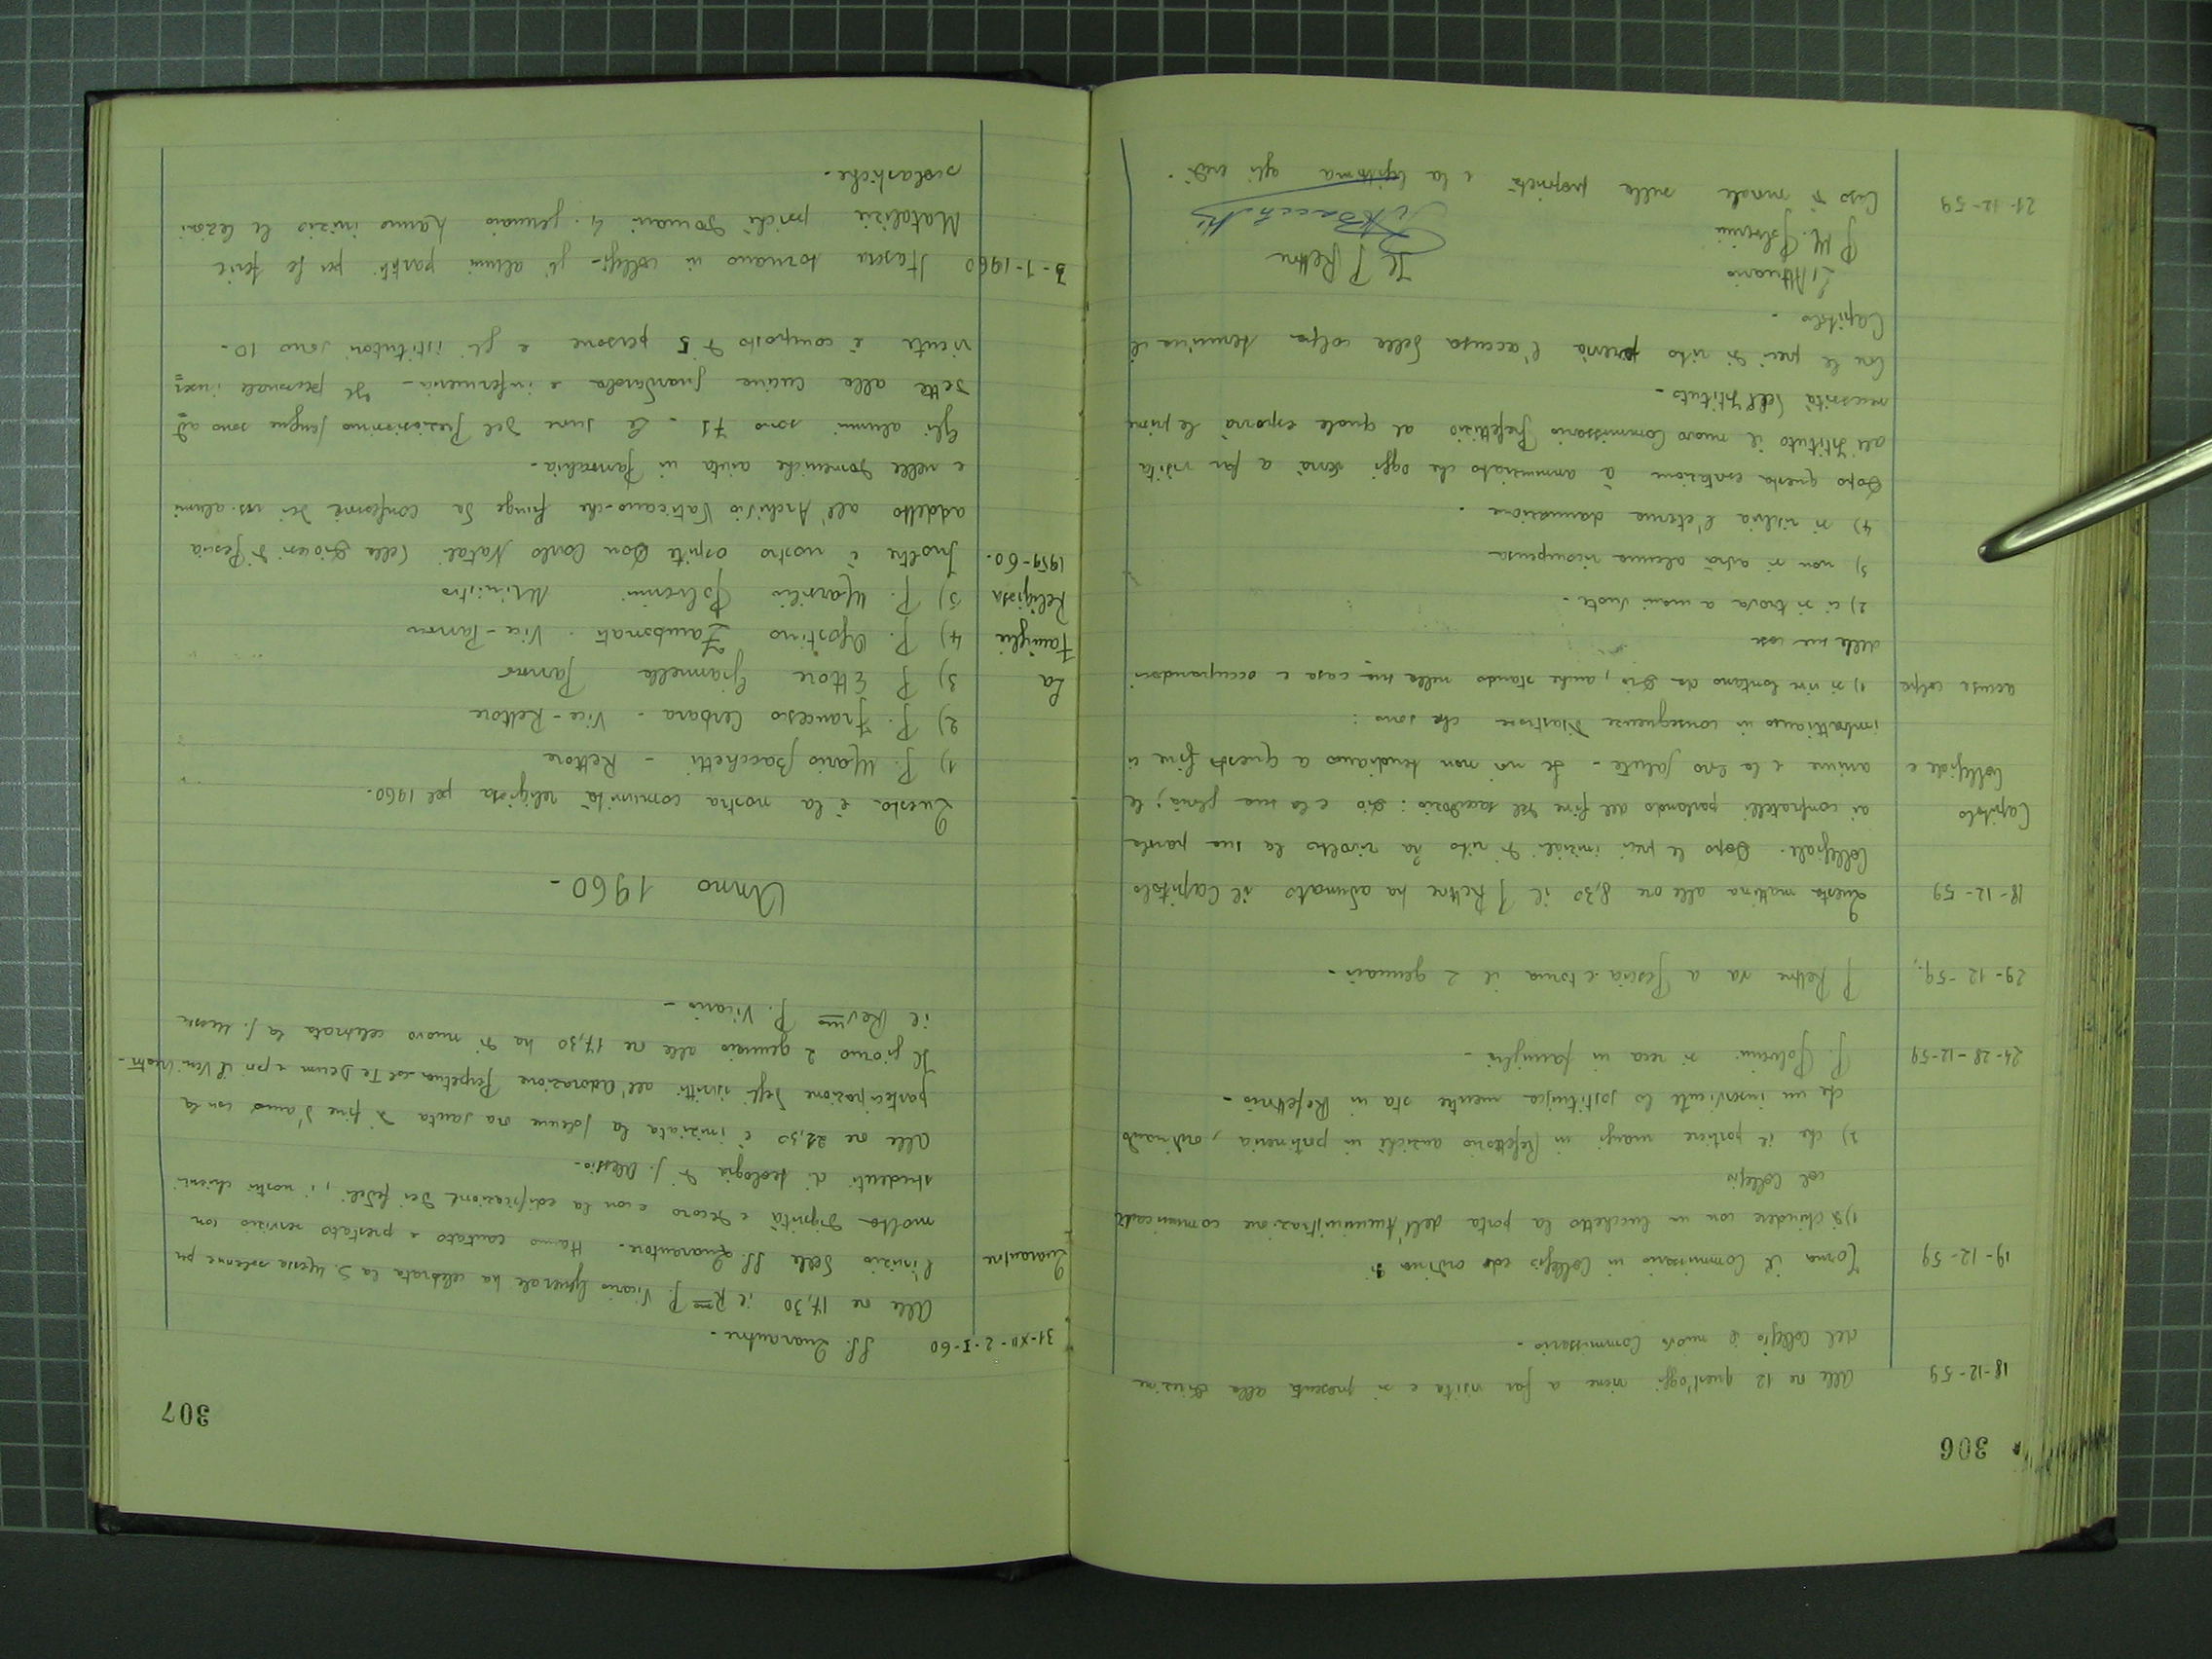 306
18-12-59 Alle ore 12 quest'oggi viene a far visita e si presenta alla direzione
del Collegio il nuovo Commissario -
19-12-59 Torna il Commissario in Collegio ed ordina di
1) chiudere con un lucchetto la porta dell'Amministrazione comunicante
col Collegio
2) che il portiere mangi in Refettorio anzichè in portineria, ordinando
che un inserviente lo sostituisca mentre sta in Refettorio -
24-28-12-59 P. Polverini si reca in famiglia -
29-12-59. P. Rettore va a Pescia e torna il 2 gennaio -
18-12-59 Questa mattina alle ore 8,30 il P. Rettore ha adunato il Capitolo
Collegiale. Dopo le preci iniziali di rito ha rivolto la sua parola
Capitolo ai confratelli parlando del fine del sacerdozio: Dio e la sua gloria; le
Collegiale e anime e la loro salute - Se noi non tendiamo a questo fine ci
imbattiamo in conseguenze disastrose che sono:
accuse colpe 1) si vive lontano da Dio, anche stando nella sua casa e occupandosi
delle sue cose
2) ci si trova a mani vuote -
3) non si avrà alcuna ricompensa
4) si rischia l'eterna dannazione.
Dopo questa esortazione à annunziato che oggi verrà a far visita
all'Istituto il nuovo Commissario Prefettizio al quale esporrà le prime
necessità dell'Istituto -
Con le preci di rito previa l'accusa delle colpe termina il
Capitolo -
L'Attuario Il P Rettore
P M. Polverini P. M Bacchetti
21-12-59 Caso di morale sulla proprietà e la legittima agli eredi.
307
31-XII-2-I-60 SS. Quarantore -
Alle ore 17,30 il Rmo P. Vicario Generale ha celebrata la S. Messa solenne per
Quarantore l'inizio delle SS. Quarantore. Hanno cantato e prestato servizio con
molta dignità e decoro e con la edificazione dei fedeli, i nostri chierici
studenti di teologia di S. Alessio -
Alle ore 21,30 è iniziata la solenne ora santa di fine d'anno con la
partecipazione degli iscritti all'Adorazione Perpetua col Te Deum e poi il Veni Creator -
Il giorno 2 gennaio alle ore 17,30 ha di nuovo celebrata la S. Messa
il Rev.mo P. Vicario -
Anno 1960 -
Questa è la nostra comunità religiosa pel 1960.
1) P. Mario Bacchetti - Rettore
2) P. Francesco Cerbara - Vice-Rettore
La 3) P. Ettore Giannella Parroco
Famiglia 4) P. Agostino Zambonati - Vice-Parroco
Religiosa 5) P. Marsilio Polverini Ministro
1959-60. Inoltre è nostro ospite Don Carlo Natali della Diocesi di Pescia
addetto all'Archivio Vaticano che funge da confessore dei ns. alunni
e nelle domeniche aiuta in Parrocchia -
Gli alunni sono 71 - Le suore del Preziosissimo Sangue sono ad=
dette alla cucina guardaroba e infermeria - Il personale inser=
viente è composto di 5 persone e gli istitutori sono 10 -
3-1-1960 Stasera tornano in collegio gli alunni partiti per le ferie
Natalizie poichè domani 4 gennaio hanno inizio le lezioni
scolastiche -